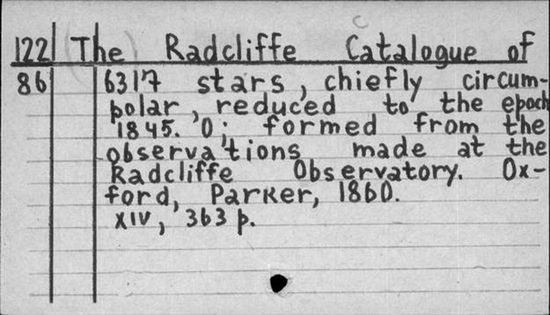 122 The Radcliffe Catalogue of
86 6317 stars, chiefly circum-
polar, reduced to the epoch
1845.0; formed from the
observations made at the
Radcliffe Observatory. Ox-
ford, Parker, 1860.
XIV, 363 p.